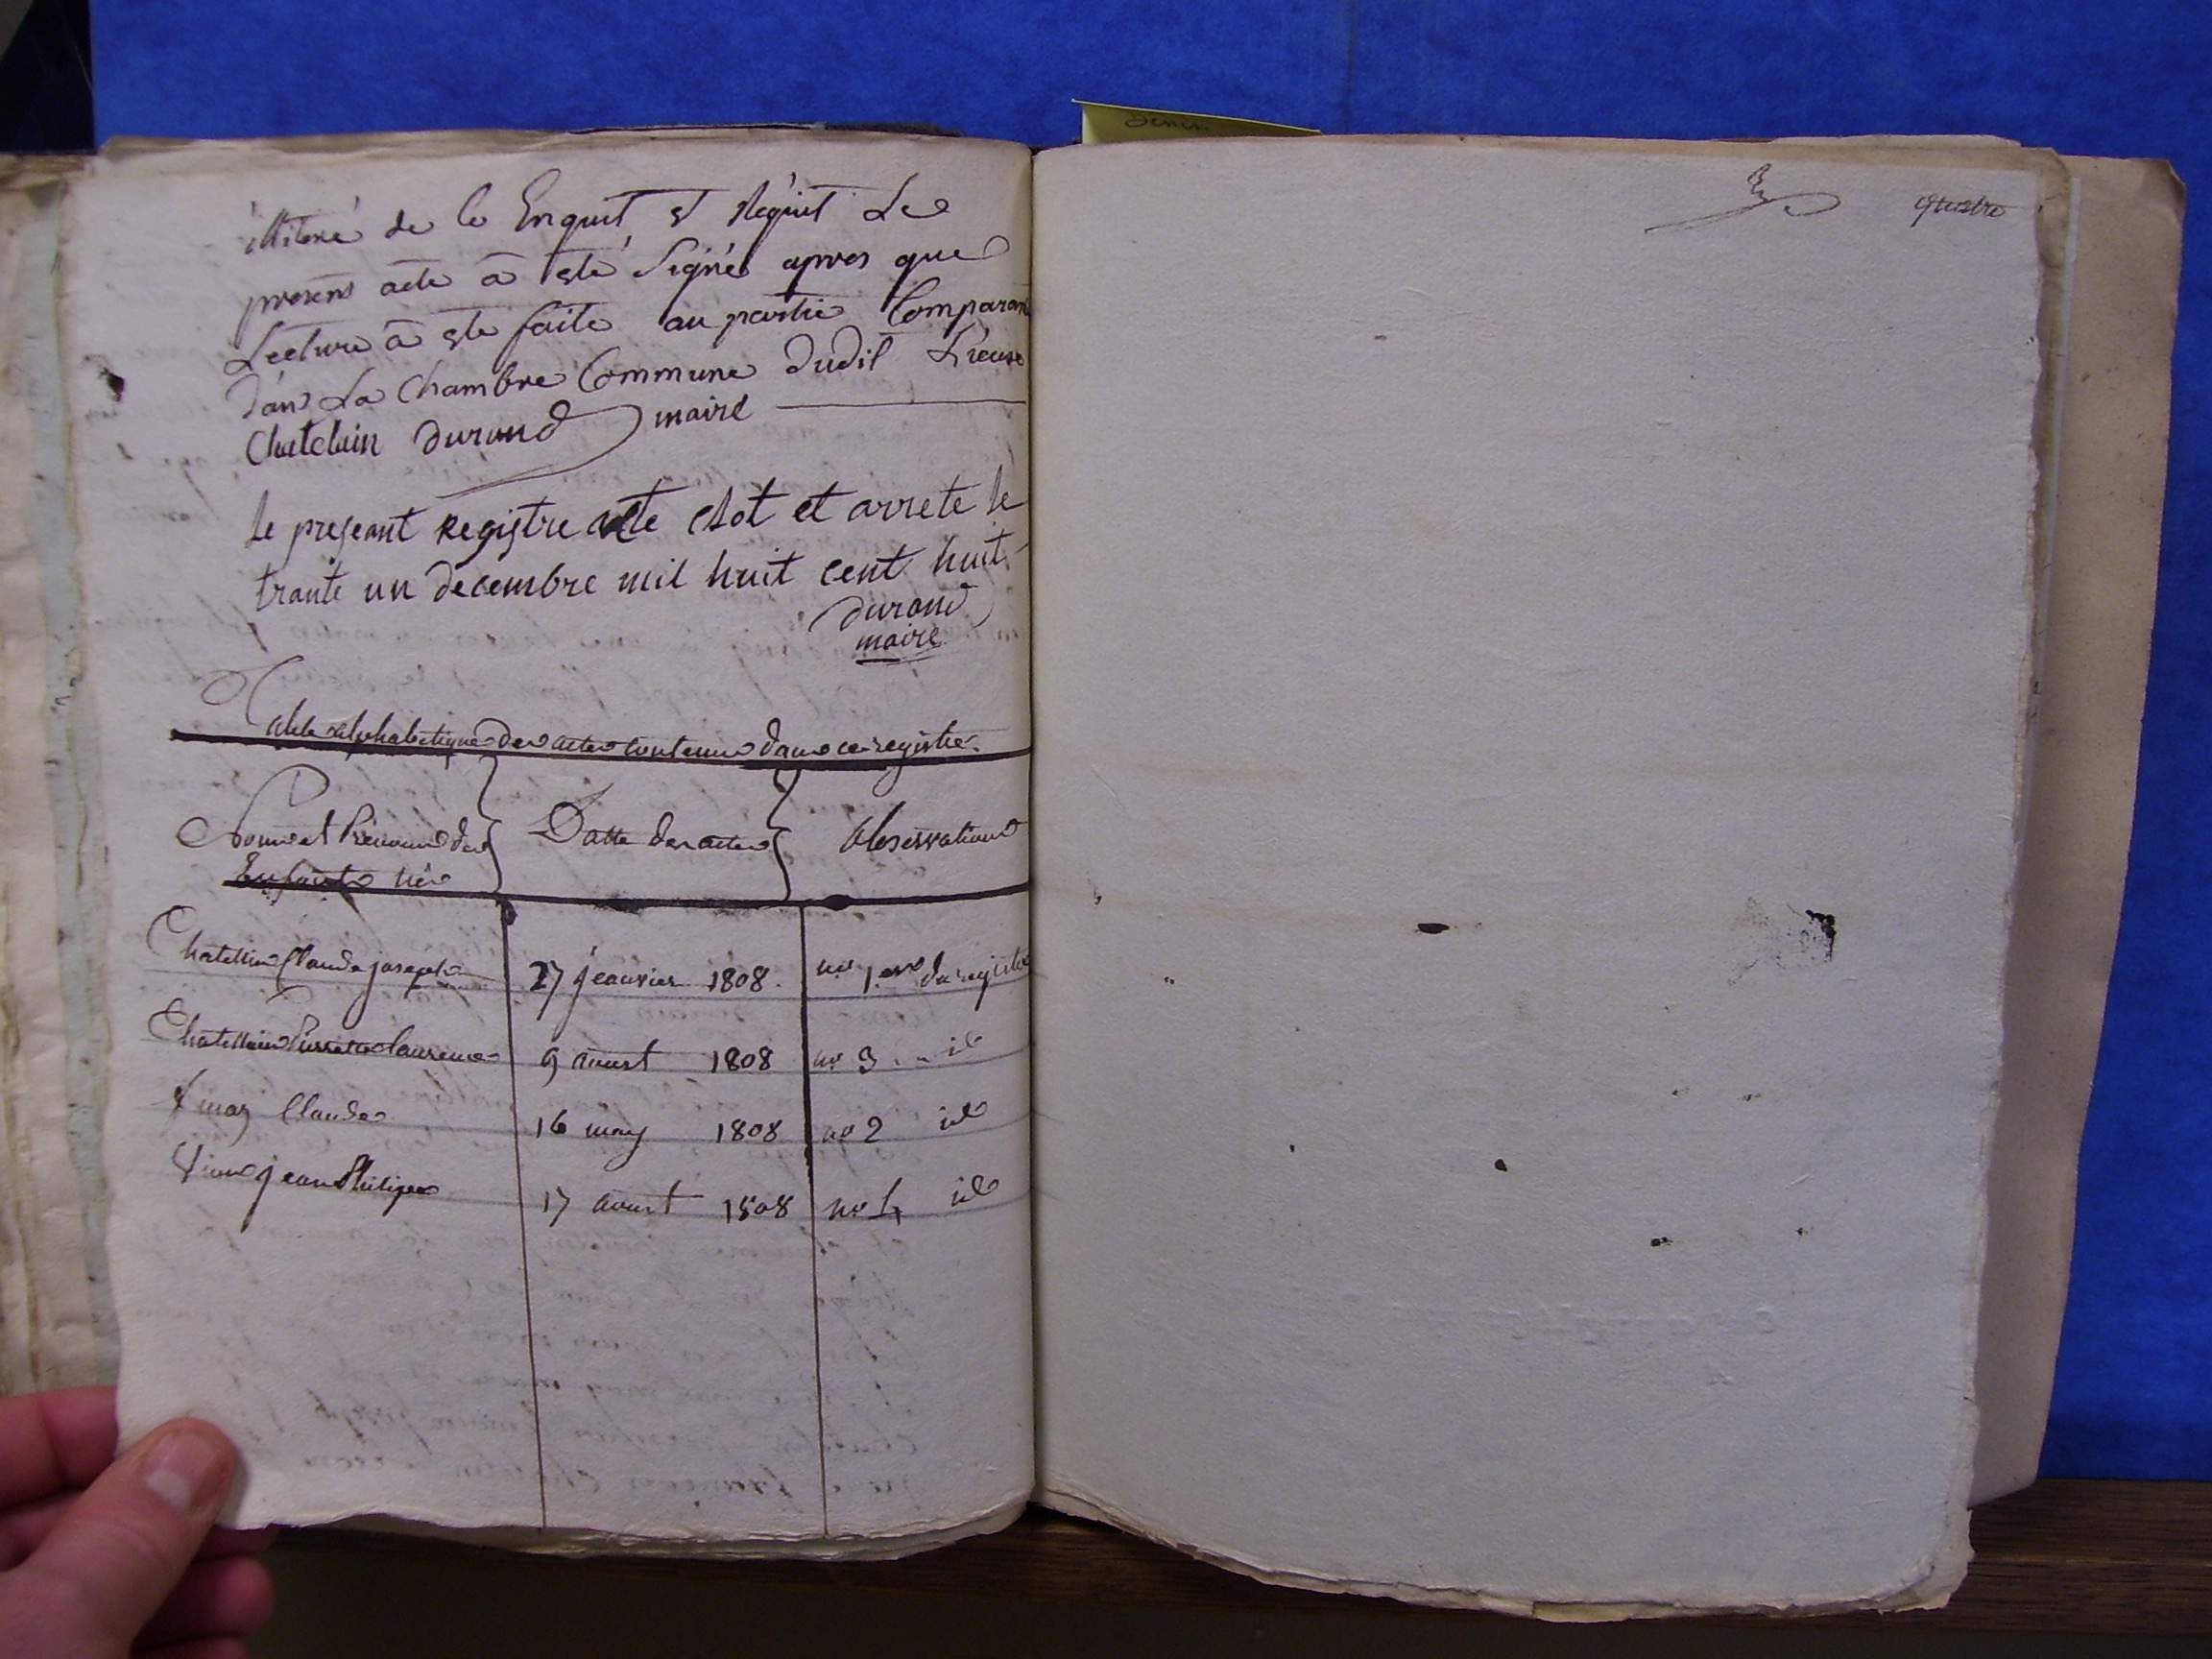 illiteré de ce Enquit et Requit Le
presens acte à esté Signé apres que
Lecture à esté faite au partie Comparant
dans La Chambre Commune dudit
Chatelain durand maire
le preseant Registre a ete clot et arrete le
trante un decembre mil huit cent huit
durand
maire
Table alphabetique des actes contenus dans ce registre.
Noms et Prénoms des Enfants nés
Datte des actes
observations
Chatellain Claude joseph 27 jeanvier 1808. no 1er du registre
Chatellain Pierrette Laurence 9 aoust 1808 no 3 id
Claude 16 may 1808 no 2 id
jean Philipe 17 aoust 1808 no 4 id
quatre